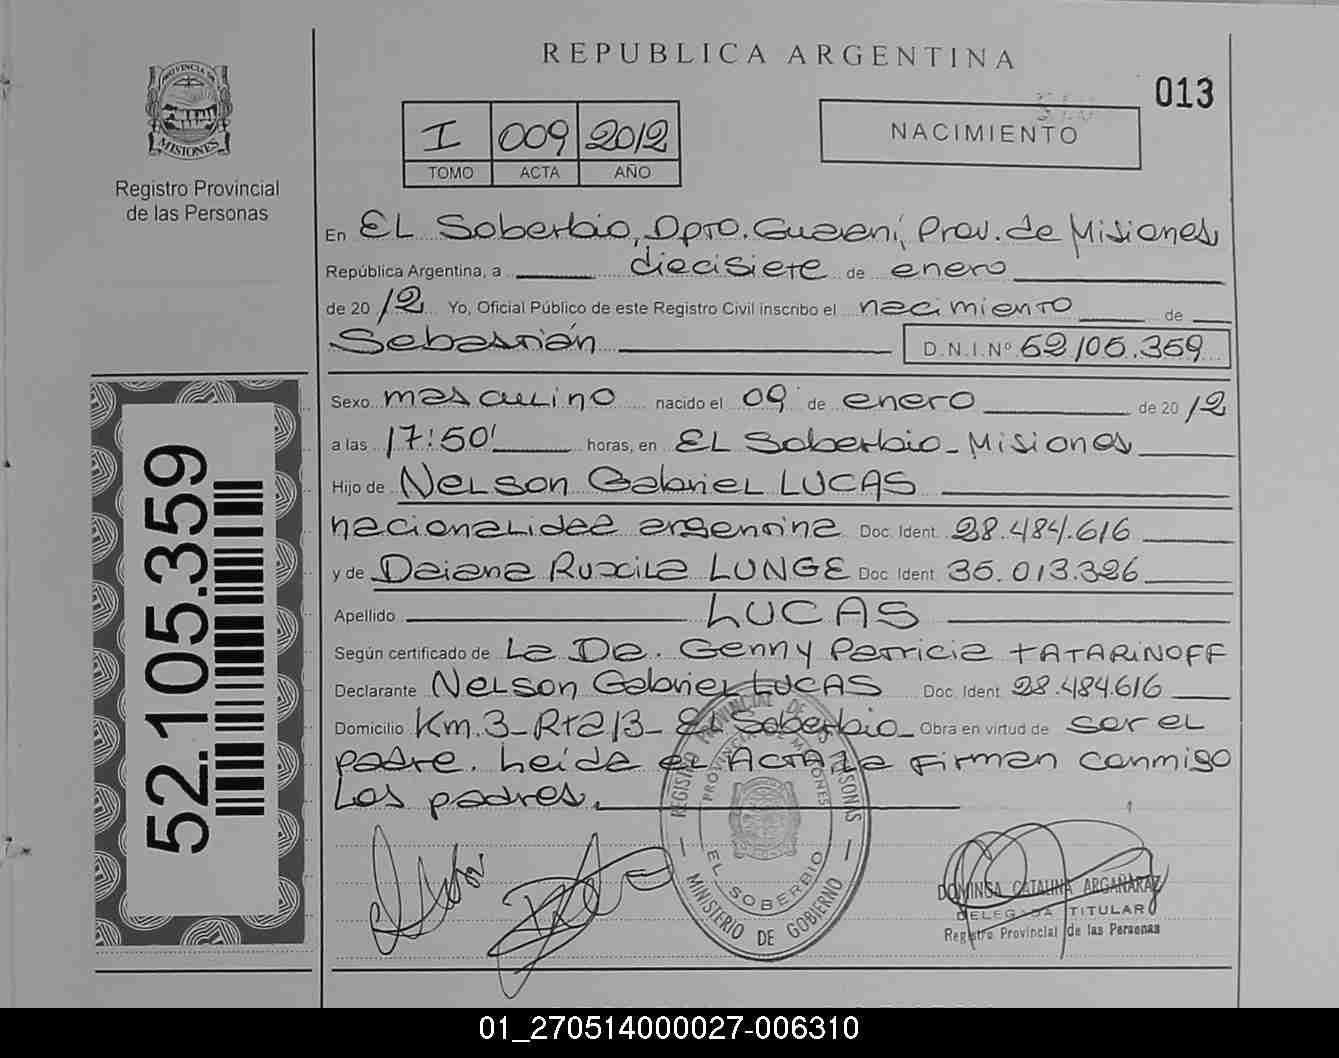 REPUBLICA ARGENTINA
013
PROVINCIA DE
MISIONES
Registro Provincial
de las Personas
I 009 2012
TOMO ACTA AÑO
NACIMIENTO
En EL Soberbio, Dpto. Guaraní, Prov. de Misiones
República Argentina, a diecisiete de enero
de 2012 Yo, Oficial Público de este Registro Civil inscribo el nacimiento de
Sebastián D.N.I.Nº 52.105.359
Sexo masculino nacido el 09 de enero de 2012
a las 17:50' horas, en EL Soberbio - Misiones
Hijo de Nelson Gabriel LUCAS
nacionalidad argentina Doc. Ident. 28.484.616
y de Daiana Ruxila LUNGE Doc. Ident. 35.013.326
Apellido LUCAS
Según certificado de La Da. Genny Patricia TATARINOFF
Declarante Nelson Gabriel LUCAS Doc. Ident. 28.484.616
Domicilio Km. 3 - Rta 13 - EL Soberbio - Obra en virtud de ser el
padre. Leída el ACTA la firman conmigo
Los padres.
52.105.359
REGISTRO PROVINCIAL DE LAS PERSONAS
PROVINCIA DE MISIONES
EL SOBERBIO
MINISTERIO DE GOBIERNO
DOMINGA CATALINA ARGAÑARAZ
DELEGADA TITULAR
Registro Provincial de las Personas
01_270514000027-006310